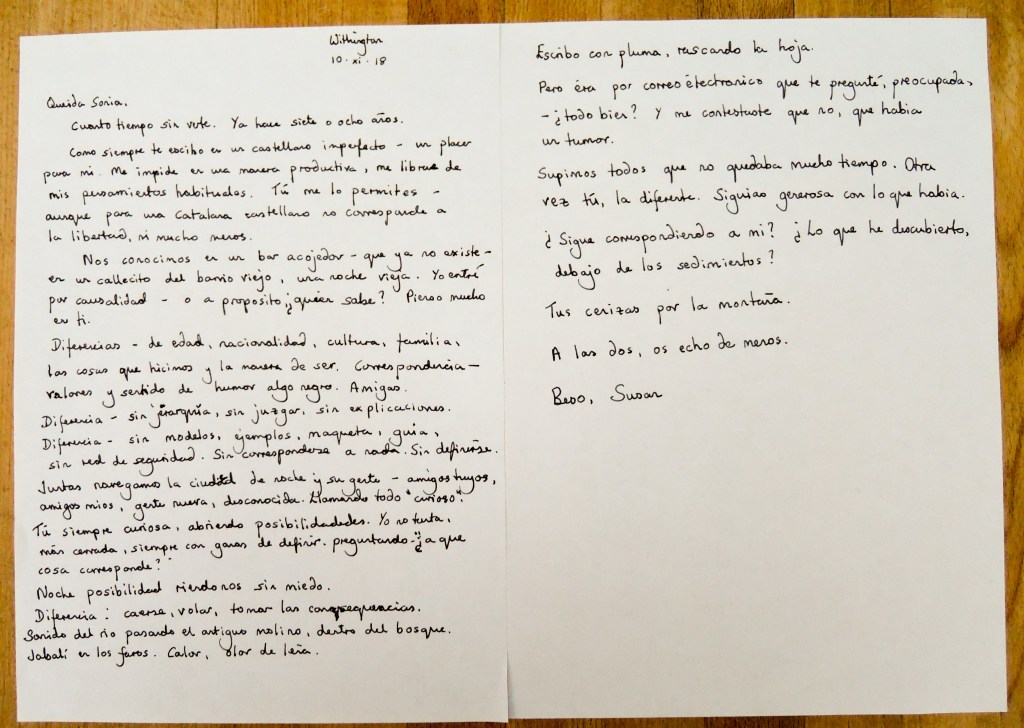 Withington
10 · xi · 18
Querida Sonia,
Cuanto tiempo sin verte. Ya hace siete o ocho años.
Como siempre te escribo en un castellano imperfecto – un placer
para mi. Me impide en una manera productiva, me libra de
mis pensamientos habituales. Tú me lo permites –
aunque para una Catalana castellano no corresponde a
la libertad, ni mucho menos.
Nos conocimos en un bar acojedor – que ya no existe –
en un callecito del barrio viejo, una noche vieja. Yo entré
por causalidad – o a proposito, ¿quien sabe? Pienso mucho
en ti.
Diferencias – de edad, nacionalidad, cultura, familia,
las cosas que hicimos y la manera de ser. Correspondencia –
valores y sentido de humor algo negro. Amigas.
Diferencia – sin jerarquía, sin juzgar, sin explicaciones.
Diferencia – sin modelos, ejemplos, maqueta, guia,
sin red de seguridad. Sin corresponderse a nada. Sin definirse.
Juntas navegamos la ciudad de noche y su gente – amigos tuyos,
amigos mios, gente nueva, desconocida. Llamando todo "curioso".
Tú siempre curiosa, abriendo posibilidadades. Yo no tanta,
más cerrada, siempre con ganas de definir. preguntando – "¿a que
cosa corresponde?"
Noche posibilidad riendonos sin miedo.
Diferencia : caerse, volar, tomar las consequencias.
Sonido del rio pasando el antiguo molino, dentro del bosque.
Jabalí en los faros. Calor, olor de leña.
Escribo con pluma, rascando la hoja.
Pero éra por correo électronico que te pregunté, preocupada,
– ¿todo bien? Y me contestaste que no, que habia
un tumor.
Supimos todos que no quedaba mucho tiempo. Otra
vez tú, la diferente. Siguiao generosa con lo que habia.
¿Sigue correspondiendo a mi? ¿Lo que he descubierto,
debajo de los sedimientos?
Tus cenizas por la montaña.
A las dos, os echo de menos.
Beso, Susan